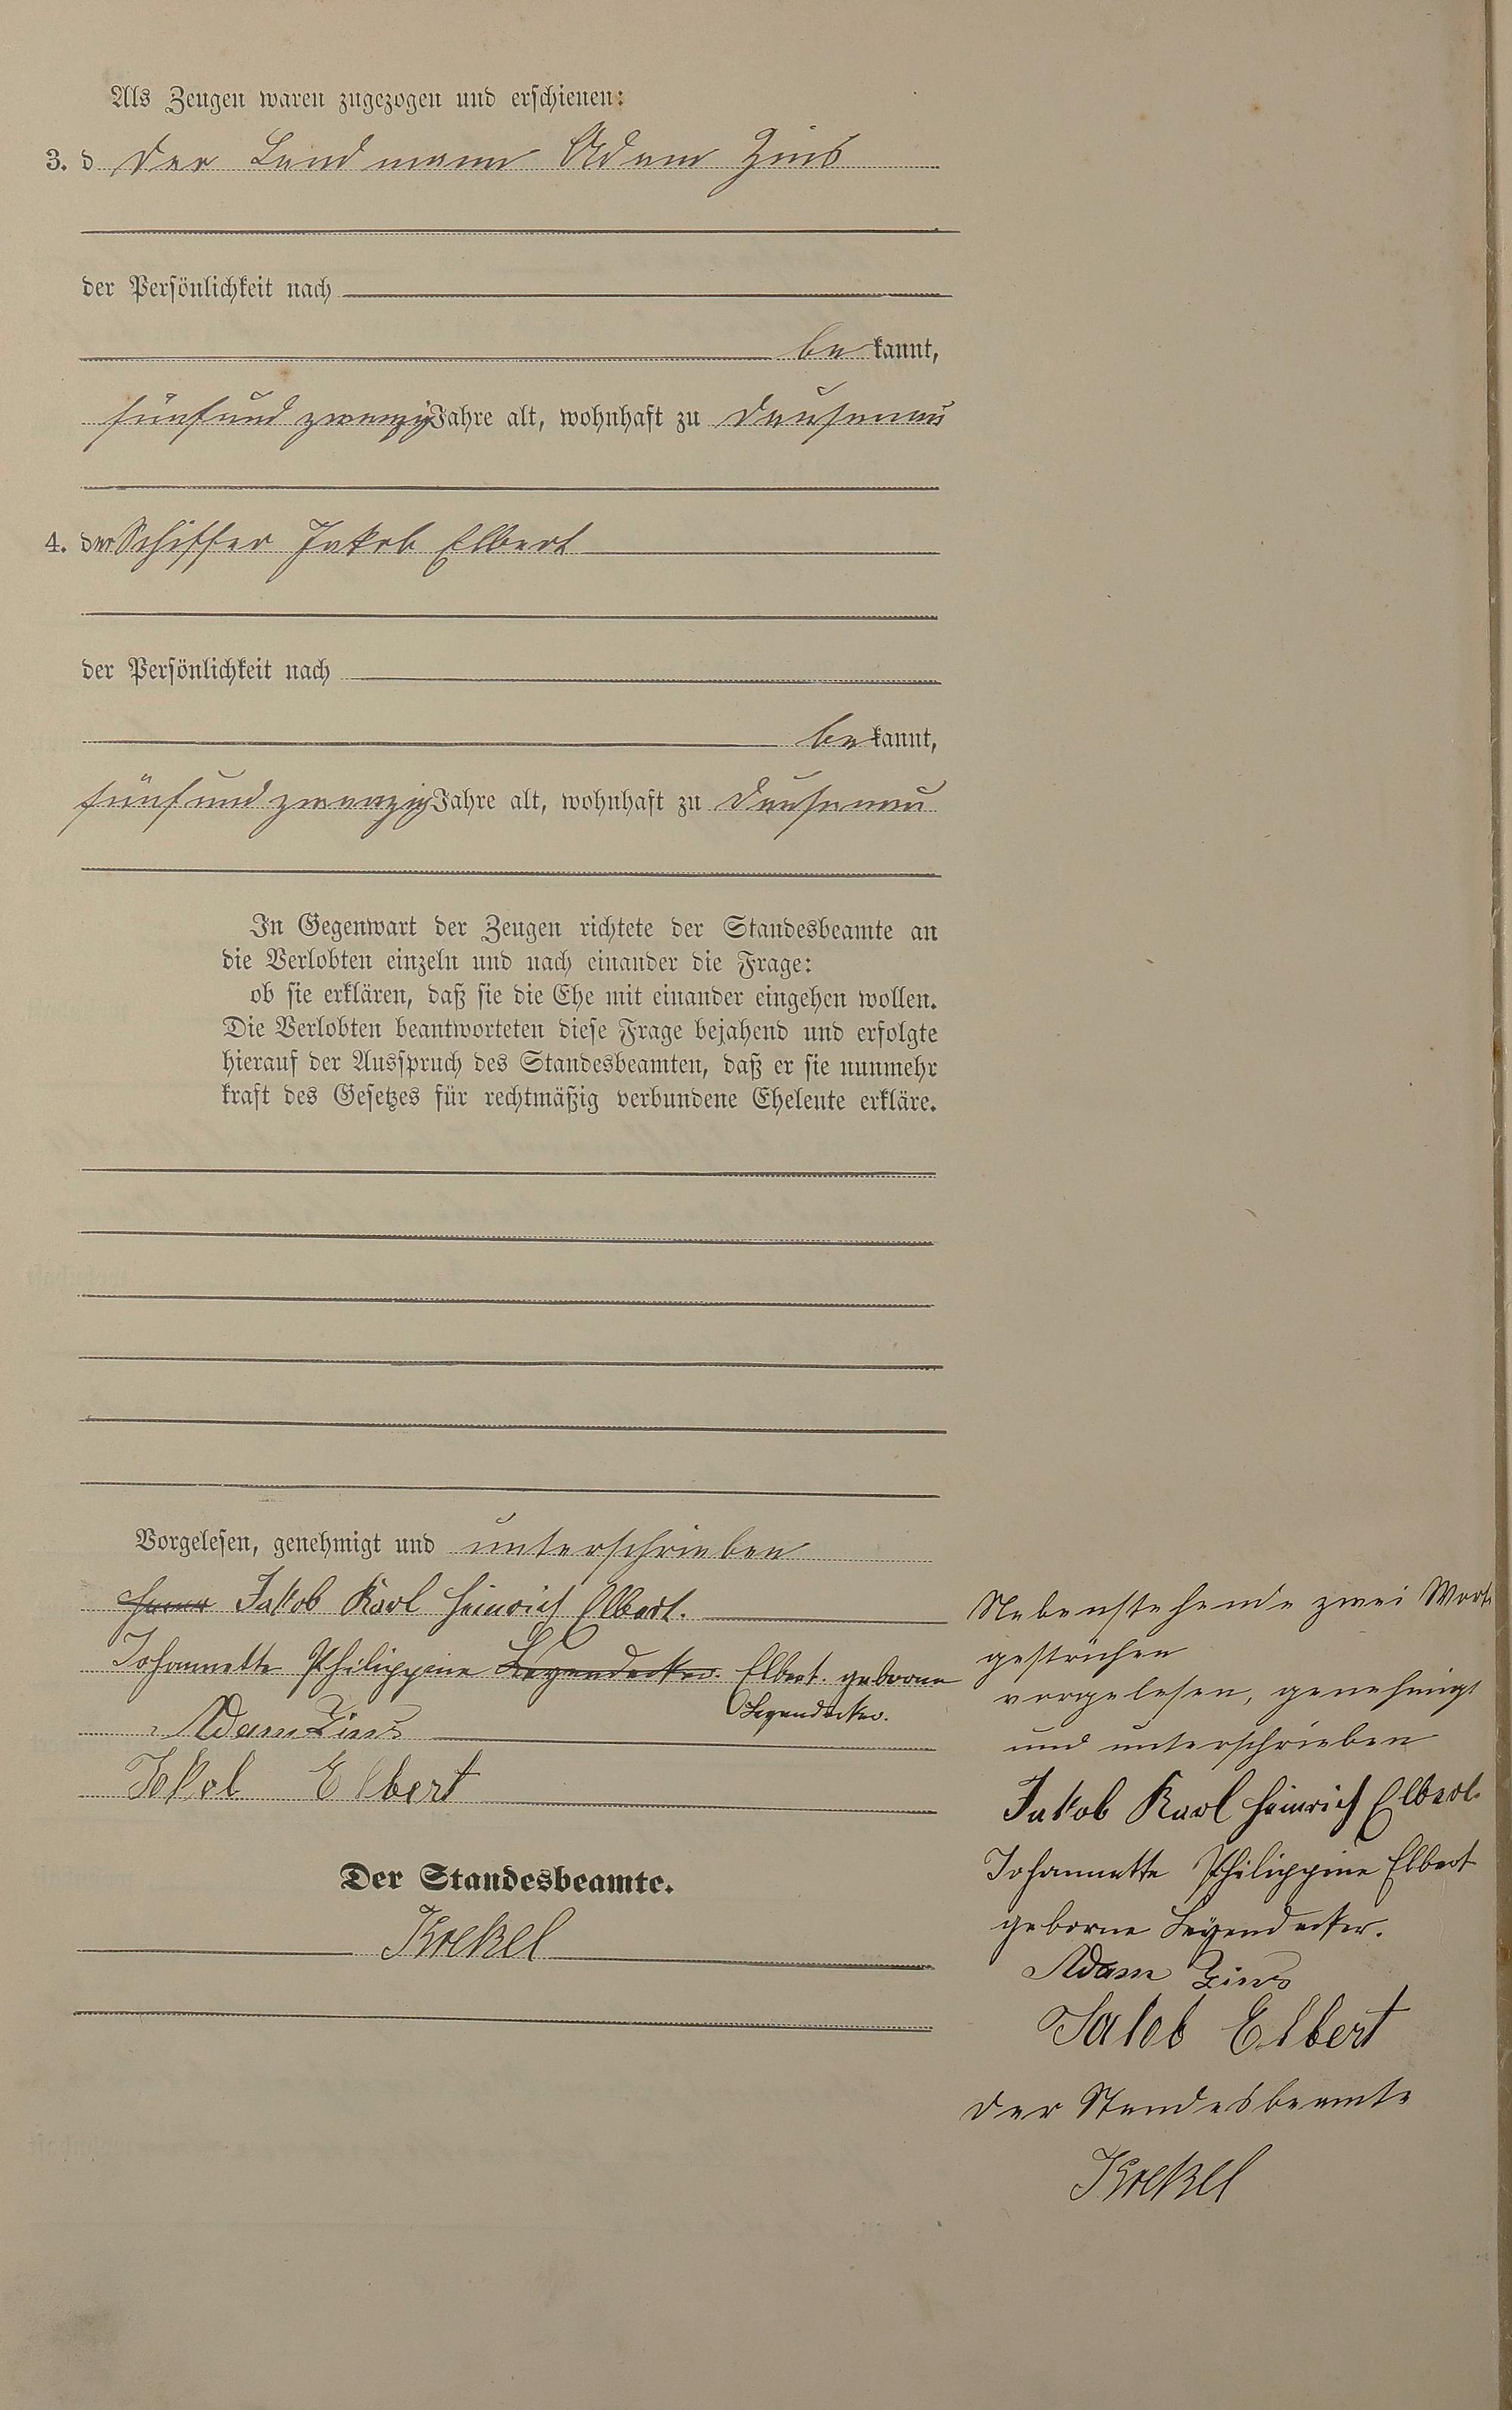 Als Zeugen waren zugezogen und erschienen:
3. d der Landmann Adam Zins
der Persönlichkeit nach
bekannt,
fünfundzwanzig Jahre alt, wohnhaft zu Dausenau
4. der Schiffer Jakob Elbert
der Persönlichkeit nach
bekannt,
fünfundzwanzig Jahre alt, wohnhaft zu Dausenau
In Gegenwart der Zeugen richtete der Standesbeamte an
die Verlobten einzeln und nach einander die Frage:
ob sie erklären, daß sie die Ehe mit einander eingehen wollen.
Die Verlobten beantworteten diese Frage bejahend und erfolgte
hierauf der Ausspruch des Standesbeamten, daß er sie nunmehr
kraft des Gesetzes für rechtmäßig verbundene Eheleute erkläre.
Vorgelesen, genehmigt und unterschrieben
Jakob Karl Heinrich Elbert.
Johannette Philippine Leyendecker. Elbert. geborne
Leyendecker.
Adam Zins
Jakob Elbert
Der Standesbeamte.
Kreckel
Nebenstehende zwei Worte
gestrichen
vorgelesen, genehmigt
und unterschrieben
Jakob Karl Heinrich Elbert.
Johannette Philippine Elbert
geborne Leyendecker.
Adam Zins
Jakob Elbert
Der Standesbeamte
Kreckel